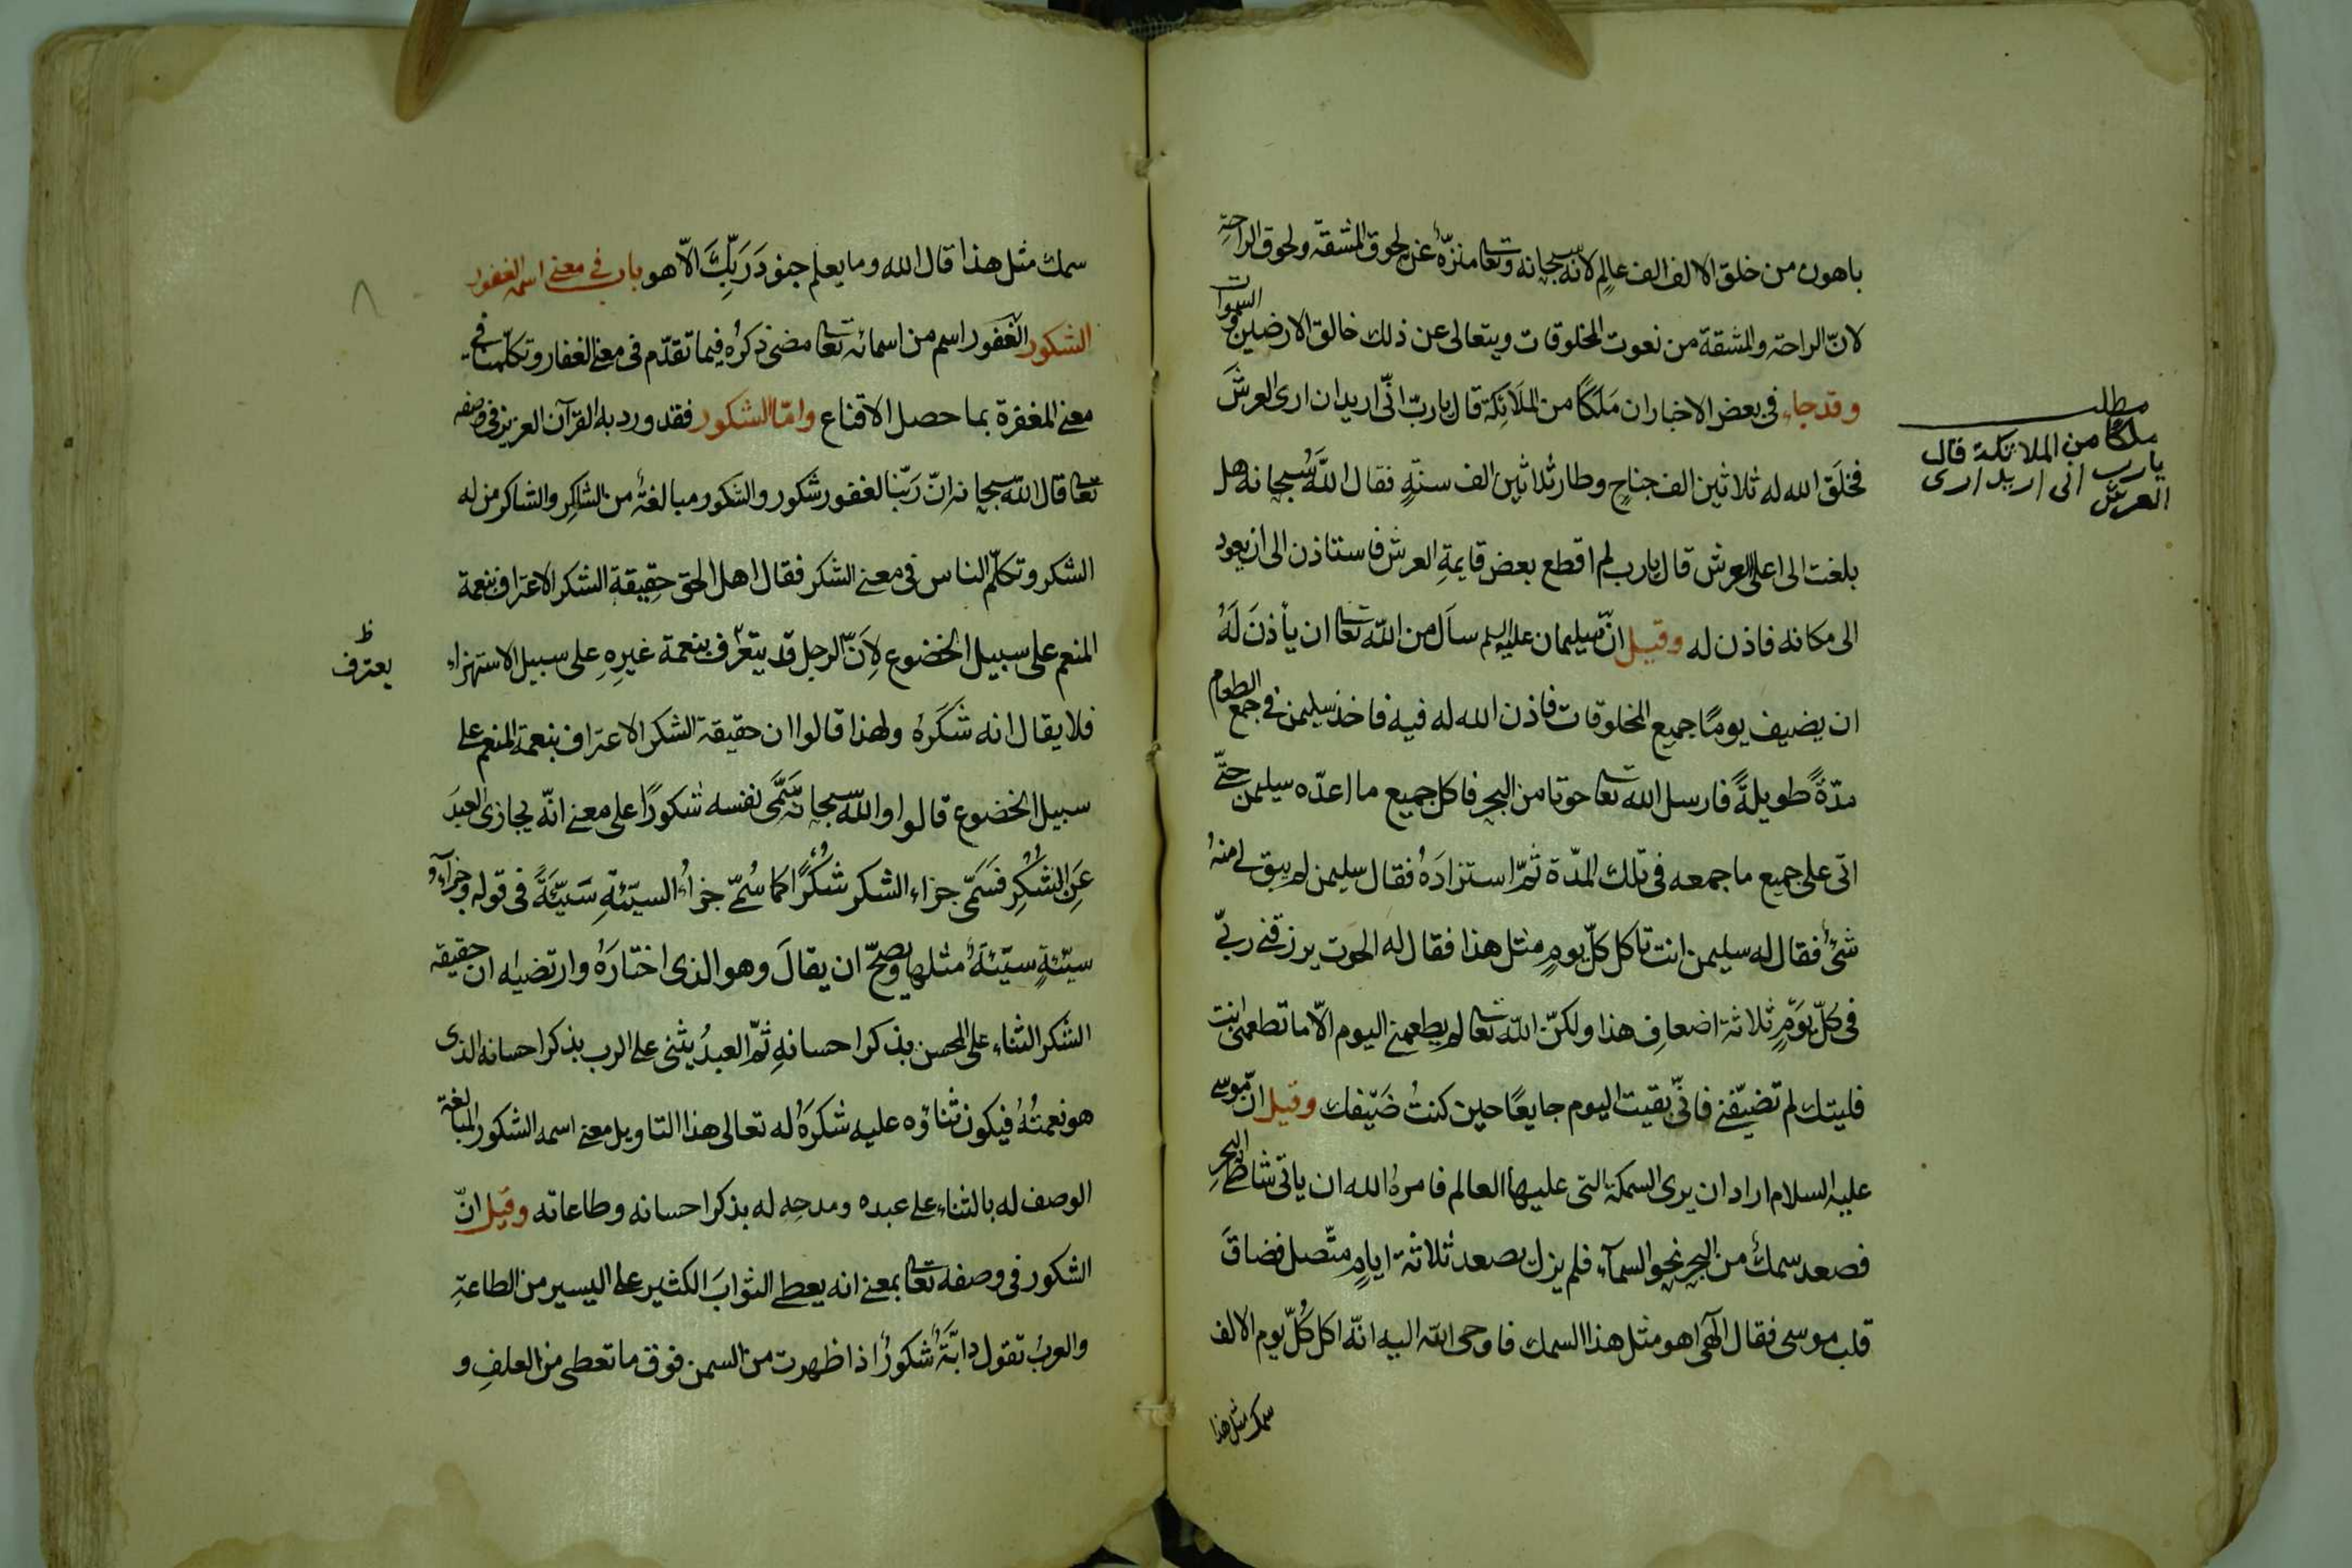 باهون من خلق الالف الف عالم لانه سبحانه وتعا منزّه عن لحوق المشقة ولحوق الراحة
لانّ الراحة والمشقة من نعوت المخلوقات ويتعالى عن ذلك خالق الارضين والسموات
وقد جاء في بعض الاخبار ان مَلَكًا من الملَائِكة قال يارب انّى اريد ان ارى العرشَ
فخلَقَ الله له ثلاثين الف جناحٍ وطار ثلاثين الف سنةٍ فقال اللّه سُبحانه هل
بلغت الى اعلى العرش قال يارب لم اقطع بعض قايمةِ العرش فاستاذن الى ان يعود
الى مكانه فاذن له وقيل انّ سليمان عليه السلم سأل من اللّه تعا ان يأذنَ لَهُ
ان يضيف يومًا جميع المخلوقات فاذن الله له فيه فاخذ سليمن في جمع الطعام
مدّةً طويلةً فارسل اللّه تعا حوتا من البحر فاكل جميع ما اعدّه سليمن حتّى
اتى على جميع ما جمعه في تلك المدّة ثمّ استزادَهُ فقال سليمن لم يبق لى منهُ
شئ فقال له سليمن انت تاكل كلّ يومٍ مثل هذا فقال له الحوت يرزقنى ربّى
في كلّ يَومٍ ثلاثة اضعافِ هذا ولكنّ اللّه تعا لم يطعمنى اليوم الّا ما تطعمنى انت
فليتك لم تضيّفنى فانّى بقيت اليوم جايعًا حين كنتُ ضَيفك وقيل انّ موسى
عليه السلام اراد ان يرى السمكة التى عليها العالم فامرهُ الله ان ياتى شاطئ البحرِ
فصعد سمكٌ من البحر نحو السمآء فلم يزل يصعد ثلاثة ايامٍ متّصل فضاقَ
قلب موسى فقال الهى اهو مثل هذا السمك فاوحى اللّه اليه انّه اكل كلّ يوم الالف
سمك مثل هذا
مطلب
ملكًا من الملائكة قال
يارب انى اريد ارى
العرش
سمك مثل هذا قال الله وما يعلم جنودَ رَبِّكَ الّا هو باب في معنى اسمه الغفور
الشكور الغَفور اسم من اسمائه تعا مضى ذكرُه فيما تقدّم في معنى الغفار وتكلّمنا في
معنى المغفرة بما حصل الاقناع وامّا الشكور فقد ورد به القرآن العزيز في وصفه
تعا قال اللّه سبحانه انّ ربّنا لغفور شكور والشكور مبالغةٌ من الشاكِر والشاكر من له
الشكر وتكلّم الناس في معنى الشكر فقال اهل الحق حقِيقة الشكر الاعتراف بنعمة
المنعم على سبيل الخضوع لِاَنّ الرجل قد يتعرّف بنعمة غيرِهِ على سبيل الاستهزاء
فلا يقال انه شَكَرَهُ ولهذا قالوا ان حقيقة الشكر الاعتراف بنعمة المنعم على
سبيل الخضوع قالوا واللّه سبحانه سَمَّى نفسه شكورًا على معنى انّه يجازى العبدَ
عَنِ الشُكرِ فسَمَّى جزاء الشكر شُكْرًا كما سُمّى جزاءُ السيّئةِ سَيّئَةً في قوله وجزآءُ
سيّئةٍ سيّئةٌ مثلها ويصحّ ان يقالَ وهو الذى اختارَهُ وارتضياه ان حقيقة
الشكر الثناء على المحسن بذكر احسانهِ ثمّ العبدُ يثنى على الرب بذكر احسانه الذى
هو نعمتُهُ فيكون ثناؤه عليه شكرَهُ له تعالى هذا التاويل معنى اسمه الشكور المبالغة
الوصف له بالثناء على عبده ومدحِه له بذكر احسانه وطاعاته وقيل انّ
الشكور في وصفه تعا بمعنى انه يعطى الثوابَ الكثير على اليسير من الطاعةِ
والعربُ تقول دابَّةٌ شكورٌ اذا ظهرت من السمن فوق ما تعطى من العلفِ و
ظ
يعترف
٨